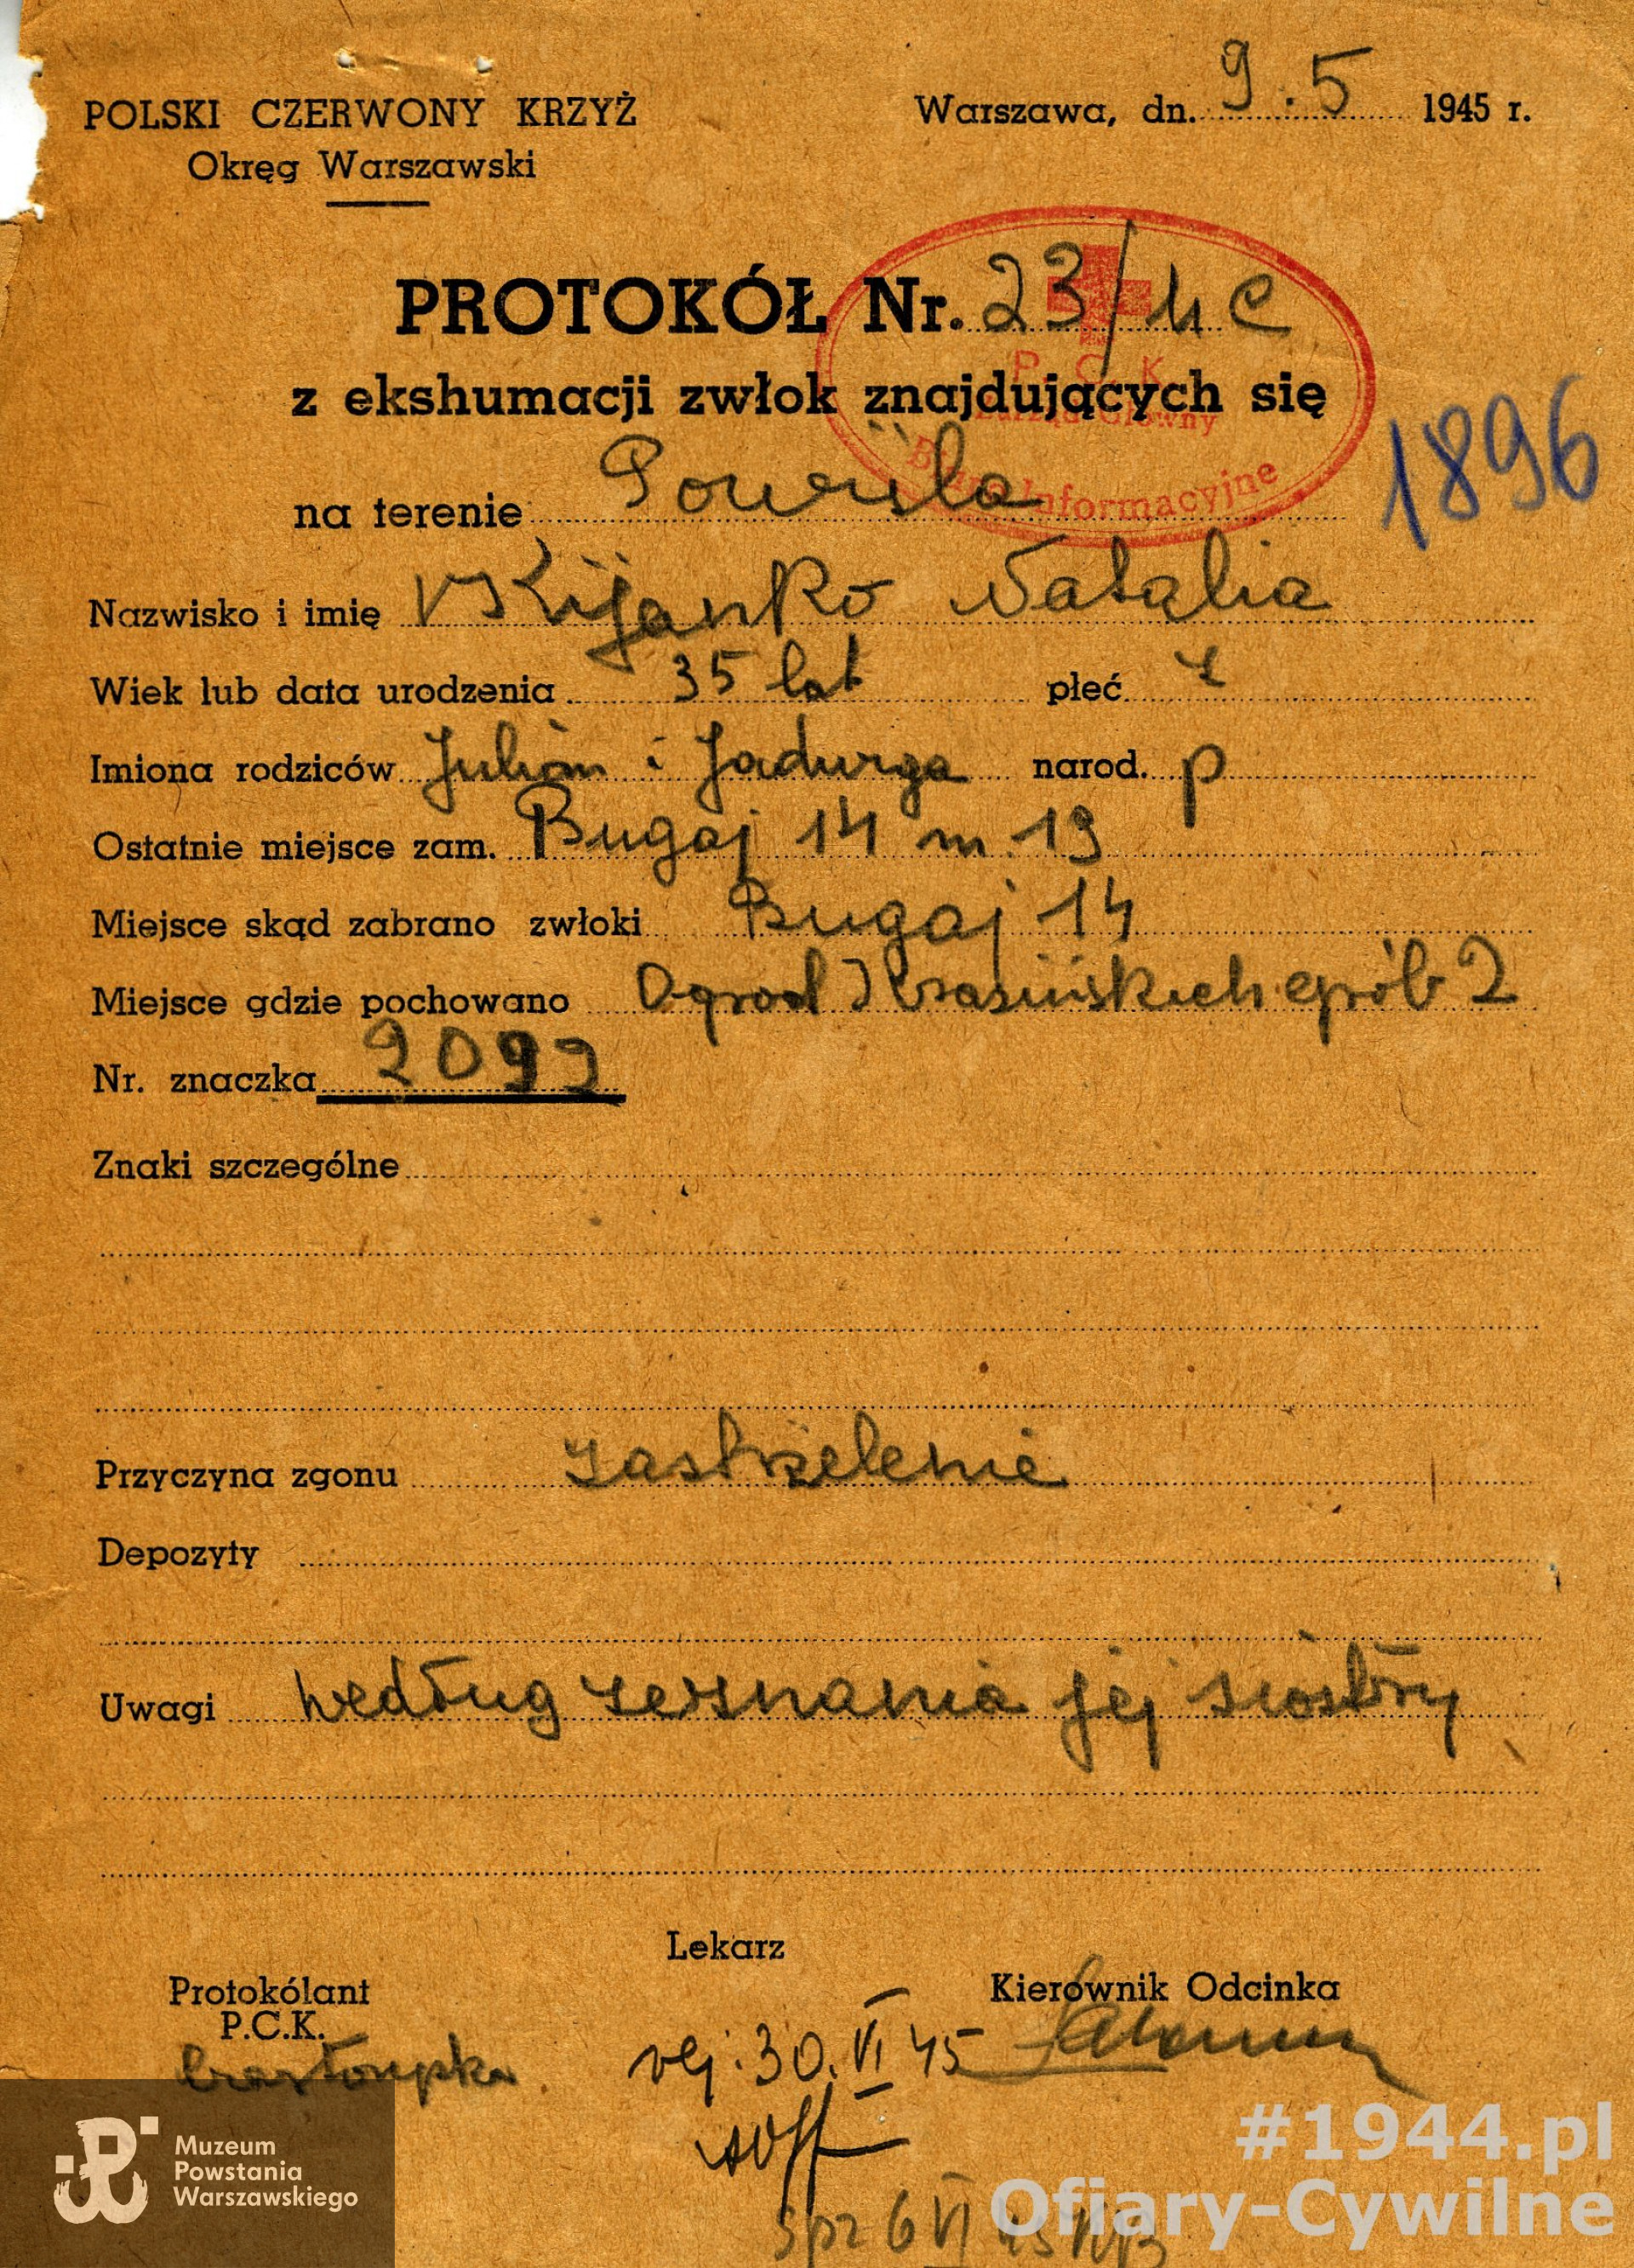 POLSKI CZERWONY KRZYŻ
Okręg Warszawski
Warszawa, dn. 9.5 1945 r.
PROTOKÓŁ Nr. 23/
z ekshumacji zwłok znajdujących się
P. C. K.
Zarząd Główny
Biuro Informacyjne
1896
na terenie Powiśla
Nazwisko i imię Kijanko Natalia
Wiek lub data urodzenia 35 lat płeć ż
Imiona rodziców Julian i Jadwiga narod. p
Ostatnie miejsce zam. Bugaj 14 m. 19
Miejsce skąd zabrano zwłoki Bugaj 14
Miejsce gdzie pochowano Ogród Krasińskich grób 2
Nr. znaczka 2092
Znaki szczególne
Przyczyna zgonu zastrzelenie
Depozyty
Uwagi według zeznania jej siostry
Lekarz
Protokólant
P.C.K.
Kierownik Odcinka
rej. 30.VI 45
spr 6 VI 45
Muzeum
Powstania
Warszawskiego
#1944.pl
Ofiary-Cywilne